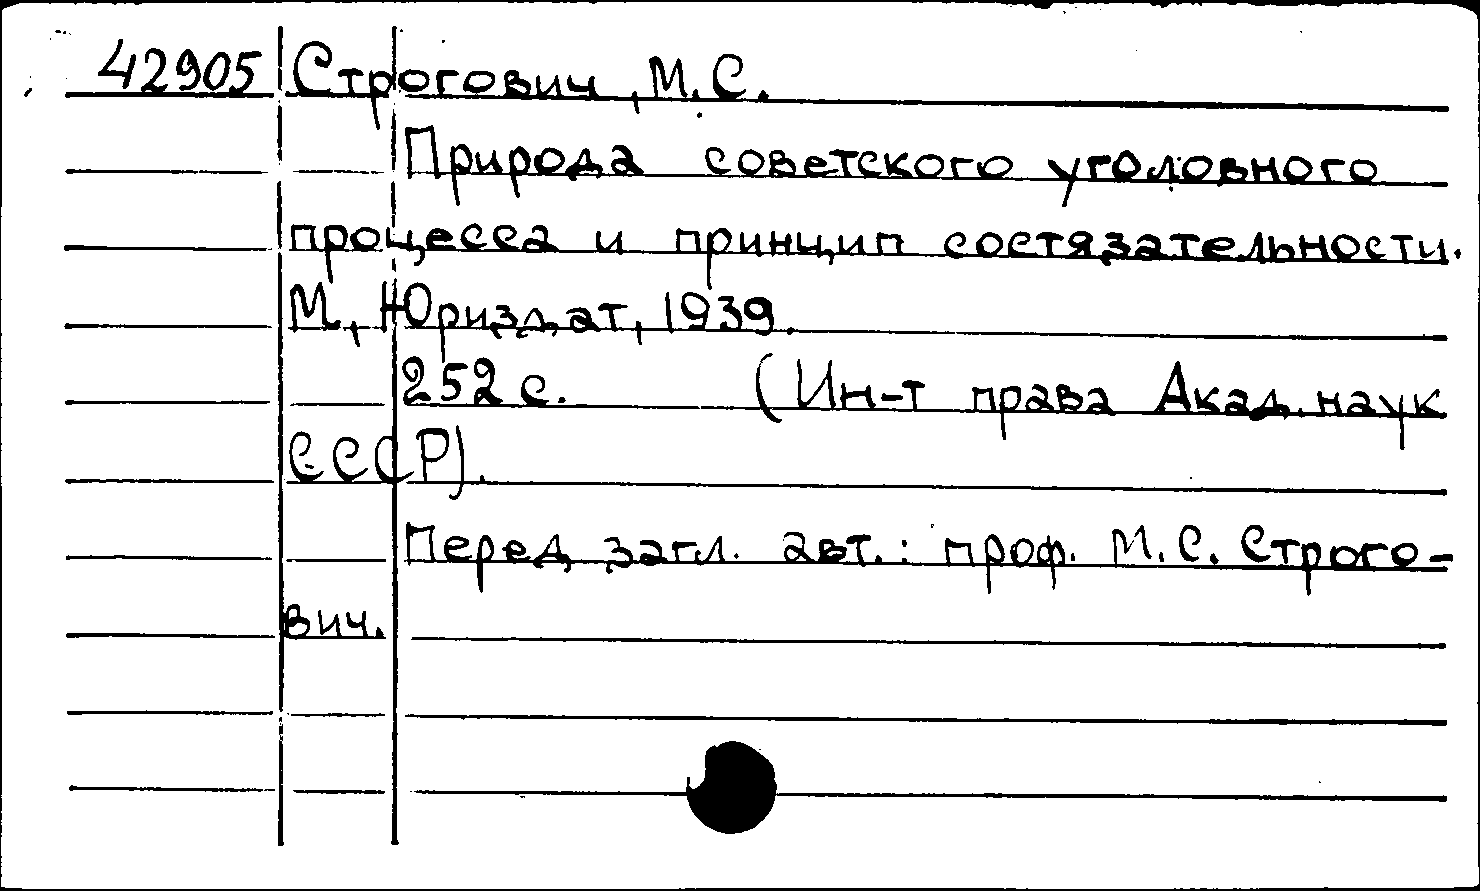 42905 Строгович, М.С.
Природа советского уголовного
процесса и принцип состязательности.
М., Юриздат, 1939.
252 с. (Ин-т права Акад. наук
СССР).
Перед загл. авт.: проф. М.С. Строго-
вич.